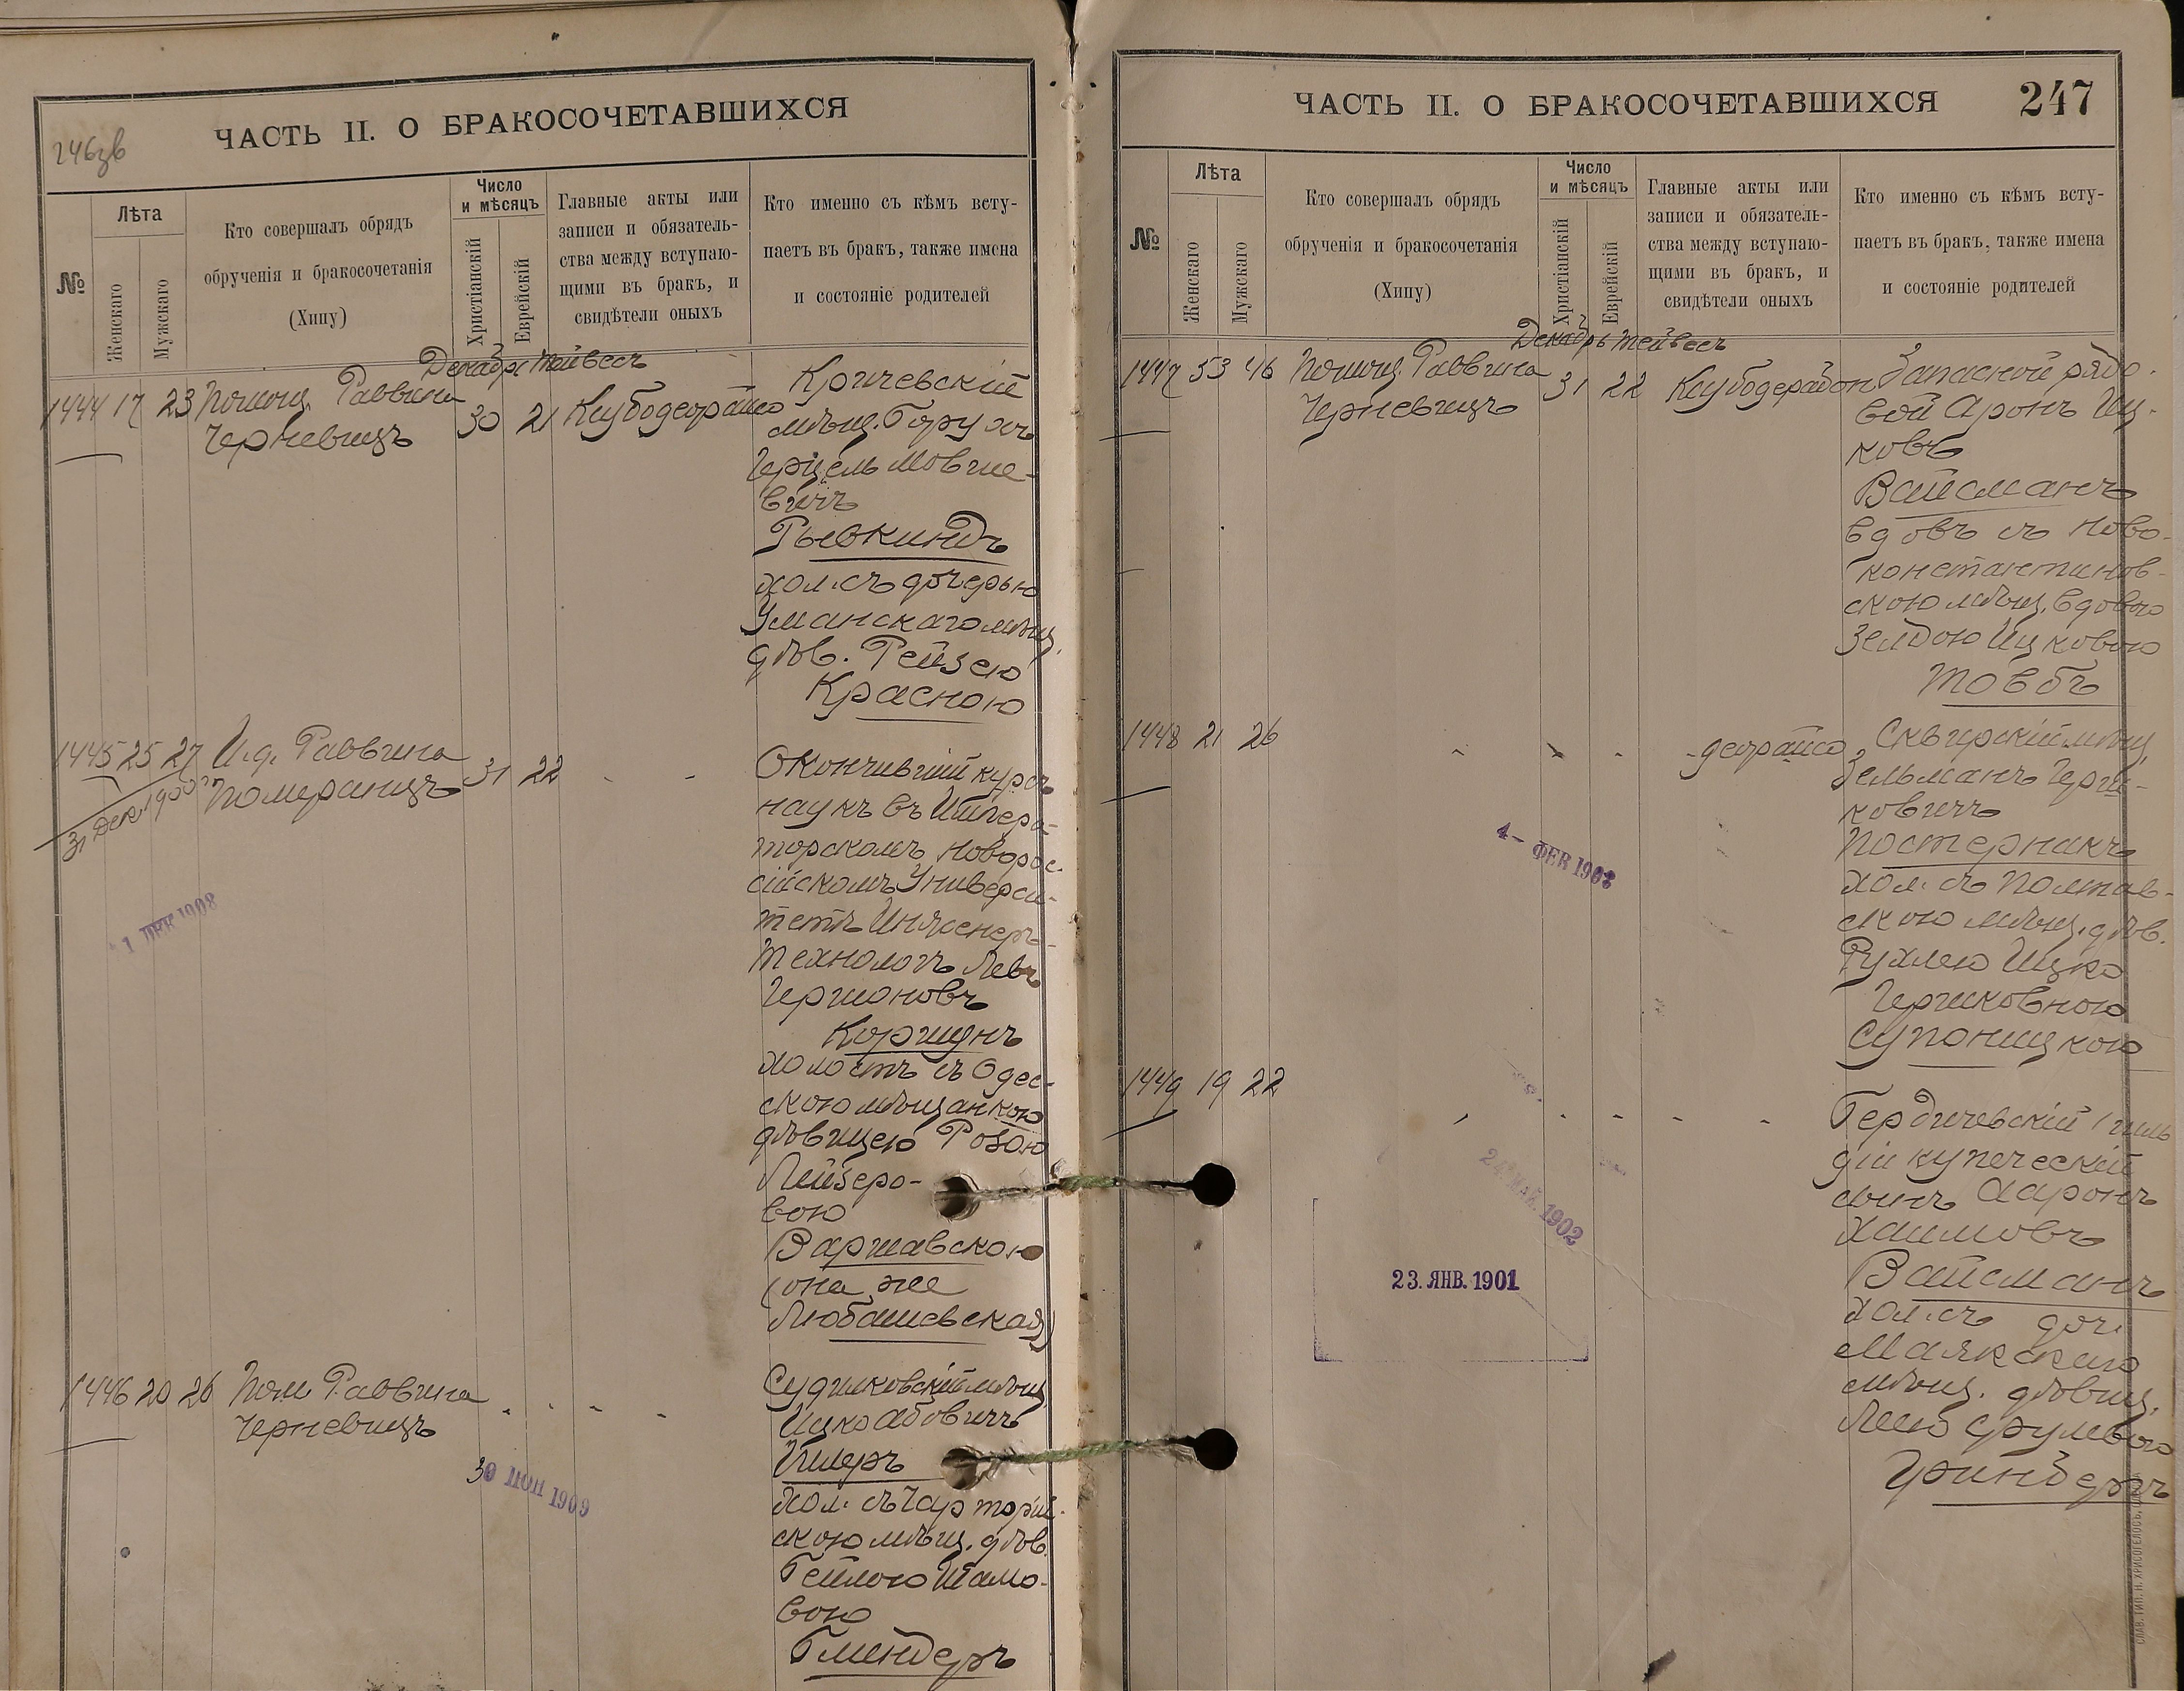 246зв
ЧАСТЬ II. О БРАКОСОЧЕТАВШИХСЯ
№
Лѣта
Женскаго
Мужскаго
Кто совершалъ обрядъ
обрученія и бракосочетанія
(Хипу)
Число
и мѣсяцъ
Христіанскій
Еврейскій
Главные акты или
записи и обязатель-
ства между вступаю-
щими въ бракъ, и
свидѣтели оныхъ
Кто именно съ кѣмъ всту-
паетъ въ бракъ, также имена
и состояніе родителей
Декабрь Тейвесъ
1444 17 23 Помощ. Раввина
Черневицъ
30 21
Кричевскій
мѣщ. Борухъ
Герцель Мовше-
вичъ
Рывкиндъ
хол. съ дочерью
Уманскаго мѣщ.
дѣв. Рейзею
Красною
1445 25 27 И.д. Раввина
Померанцъ
31 22 - -
31 Дек. 1900
1 ДЕК 1908
Окончившій курсъ
наукъ въ Импера-
торскомъ Новорос-
сійскомъ Универси-
тетѣ Инженеръ-
Технологъ Левъ
Гершоновъ
Коршунъ
холостъ съ Одес-
скою мѣщанкою
дѣвицею Розою
Лейзеро-
вою
Варшавскою
(она же
Любашевская)
1446 20 26 Пом. Раввина
Черневицъ
30 ІЮН 1909
Судилковскій мѣщ.
Ицко Абовичъ
хол. съ Чарторій-
скою мѣщ. дѣв.
Бейлою Шамо-
вою
Блендеръ
ЧАСТЬ II. О БРАКОСОЧЕТАВШИХСЯ
247
№
Лѣта
Женскаго
Мужскаго
Кто совершалъ обрядъ
обрученія и бракосочетанія
(Хипу)
Число
и мѣсяцъ
Христіанскій
Еврейскій
Главные акты или
записи и обязатель-
ства между вступаю-
щими въ бракъ, и
свидѣтели оныхъ
Кто именно съ кѣмъ всту-
паетъ въ бракъ, также имена
и состояніе родителей
Декабрь Тейвесъ
1447 53 46 Помощ. Раввина
Черневицъ
31 22
Запасной рядо-
вой Аронъ Иц-
ковъ
Вайсманъ
вдовъ съ Ново-
константинов-
скою мѣщ. вдовою
Зелдою Ицковою
Товбъ
1448 21 26
4 - ФЕВ 1908
Сквирскій мѣщ.
Зельманъ Герш-
ковичъ
Постернакъ
хол. съ Полтав-
скою мѣщ. дѣв.
Рухлею Ицко
Гершковною
Супоницкою
1449 19 22
24 МАЙ. 1902
23. ЯНВ. 1901
Бердичевскій 1 гиль
діи купеческій
сынъ Ааронъ
Хаимовъ
Вайсманъ
хол. съ доч.
Маякскаго
мѣщ. дѣвиц.
Леею Срулевою
Гринбергъ